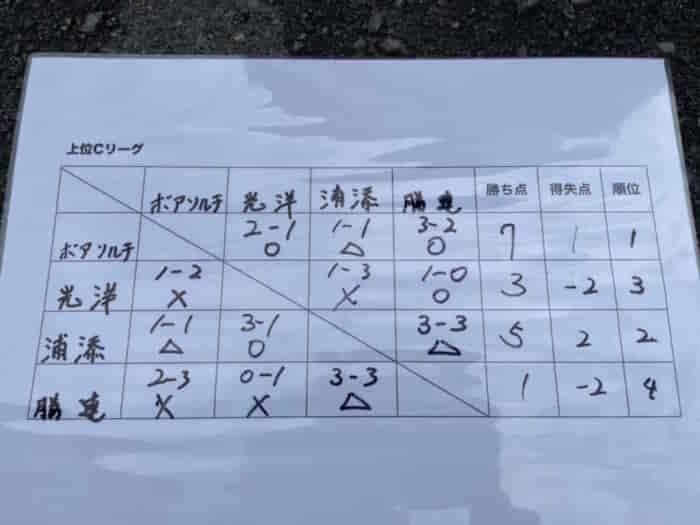 上位Cリーグ
ボアソルチ 光洋 浦添 勝連 勝ち点 得失点 順位
ボアソルチ 2-1 ○ 1-1 △ 3-2 ○ 7 1 1
光洋 1-2 × 1-3 × 1-0 ○ 3 -2 3
浦添 1-1 △ 3-1 ○ 3-3 △ 5 2 2
勝連 2-3 × 0-1 × 3-3 △ 1 -2 4